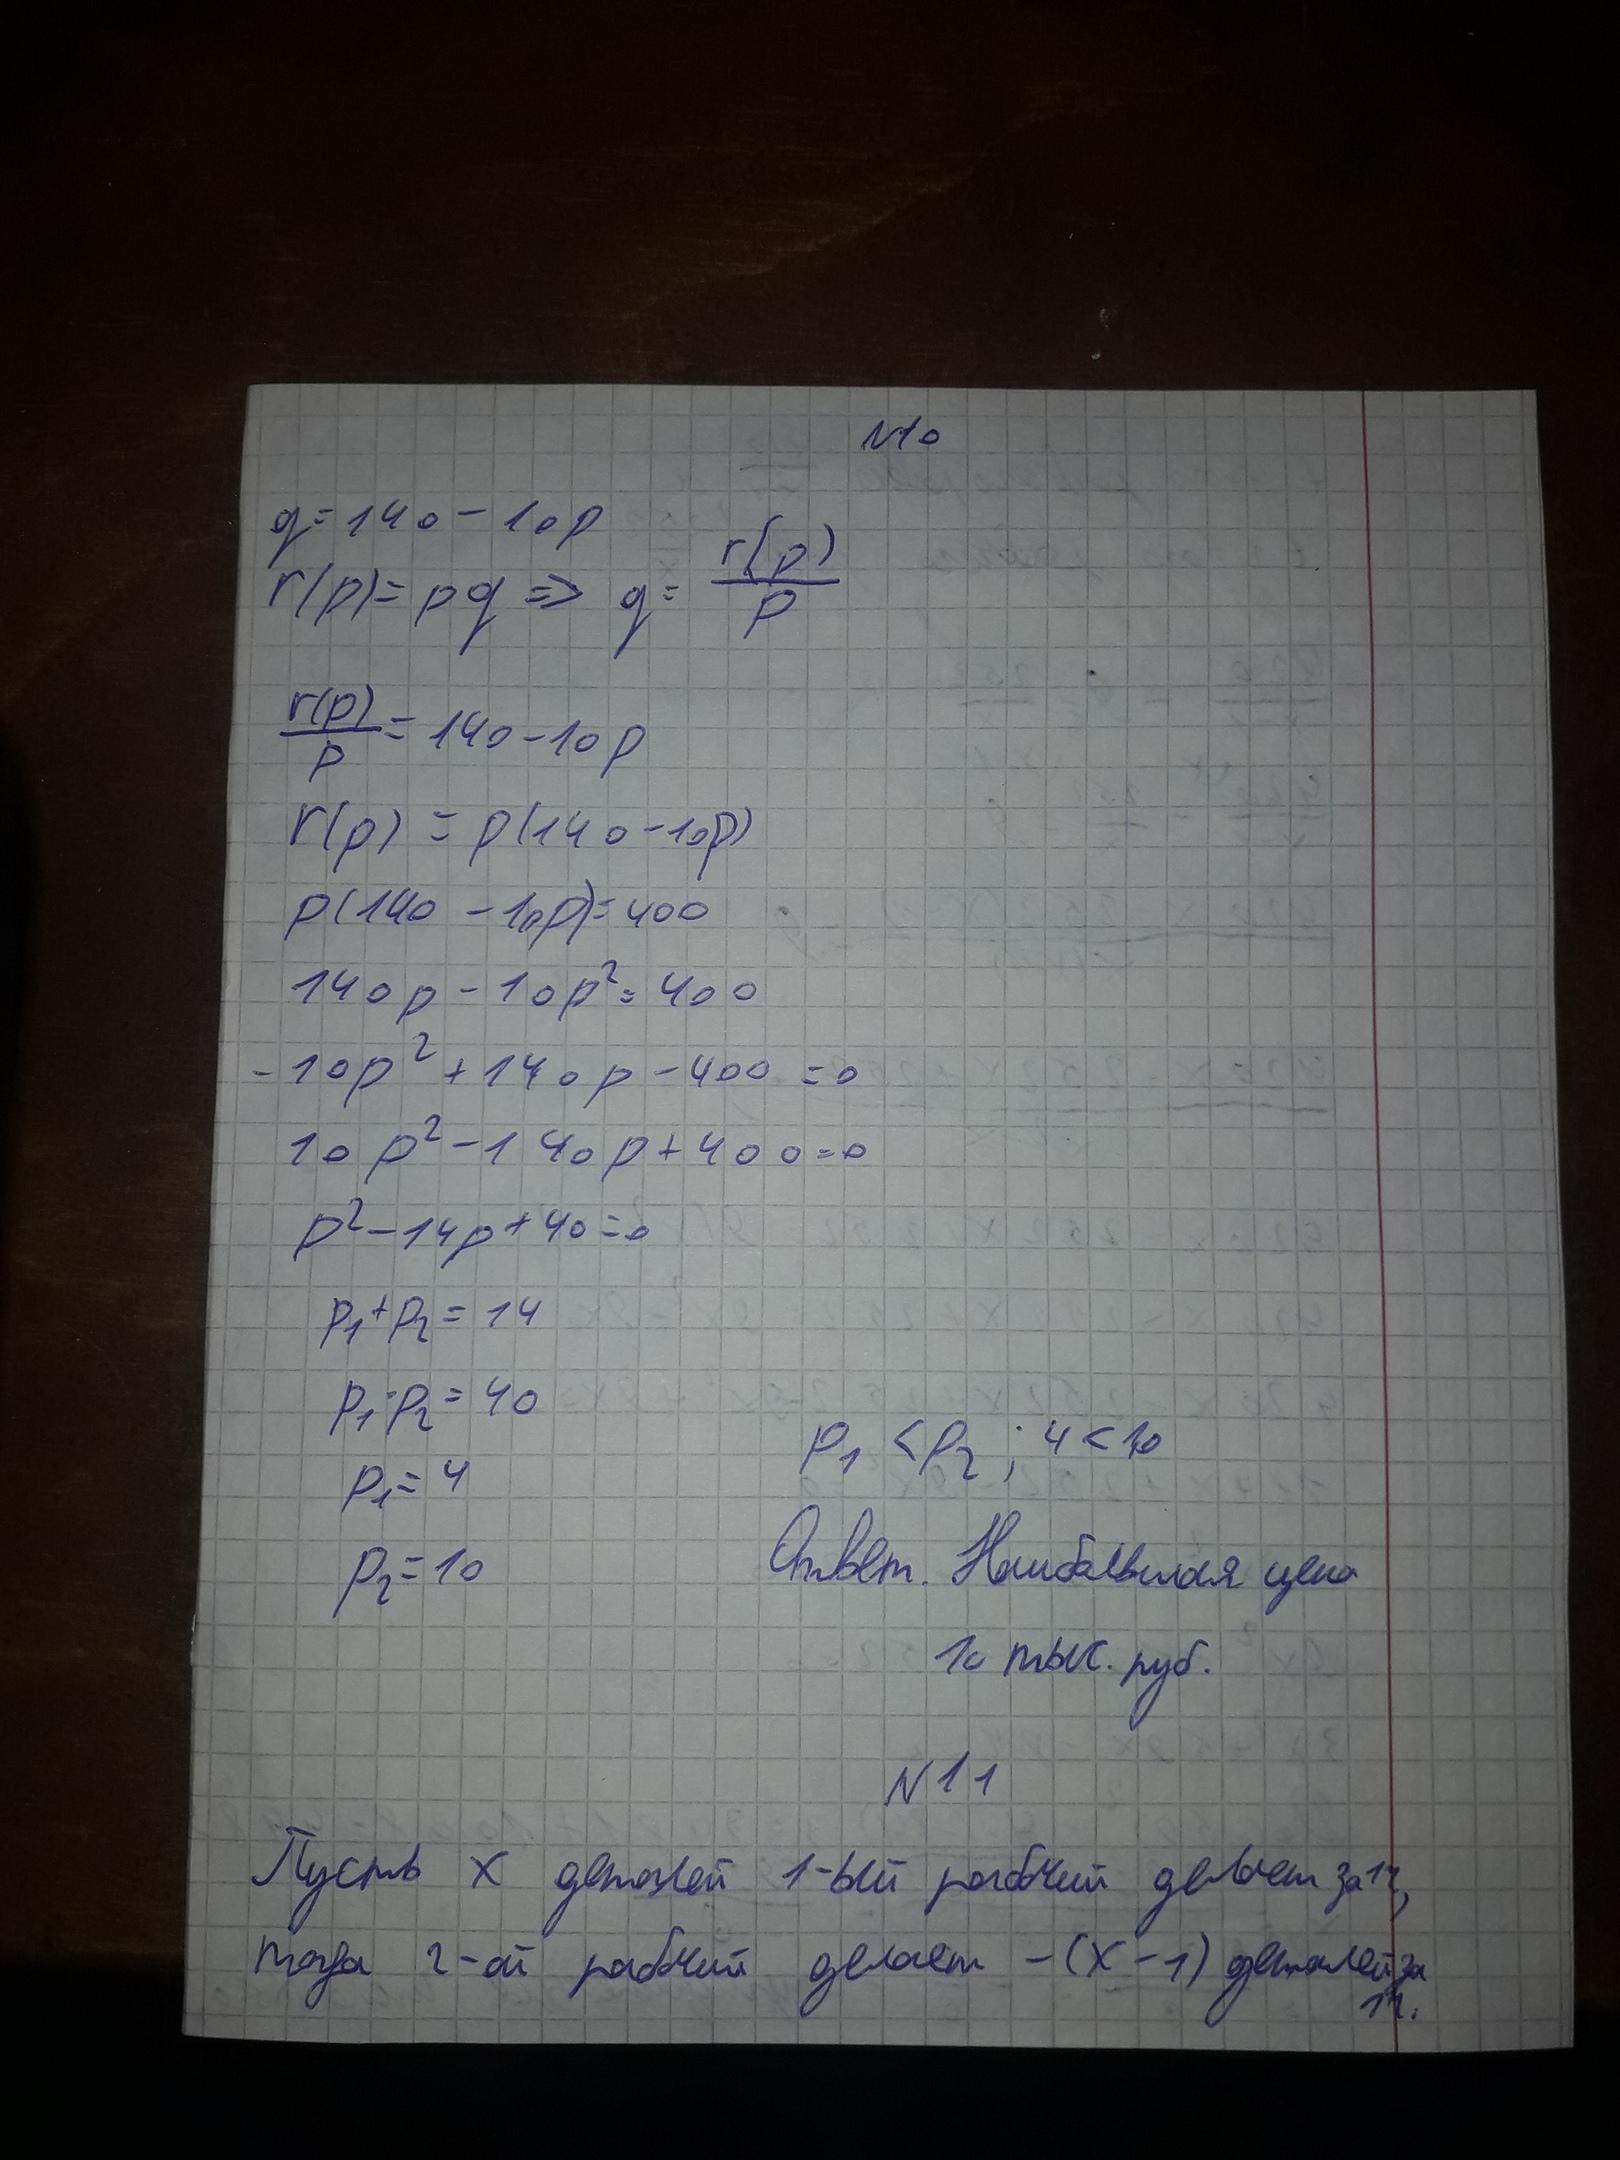 N10
q = 140 - 10p
r(p) = pq => q = r(p)/p
r(p)/p = 140 - 10p
r(p) = p(140 - 10p)
p(140 - 10p) = 400
140p - 10p² = 400
- 10p² + 140p - 400 = 0
10p² - 140p + 400 = 0
p² - 14p + 40 = 0
p₁ + p₂ = 14
p₁ · p₂ = 40
p₁ = 4
p₂ = 10
p₁ < p₂ ; 4 < 10
Ответ. Наибольшая цена
10 тыс. руб.
N11
Пусть x деталей 1-ый рабочий делает за 1ч,
тогда 2-ой рабочий делает - (x - 1) деталей за
1ч.